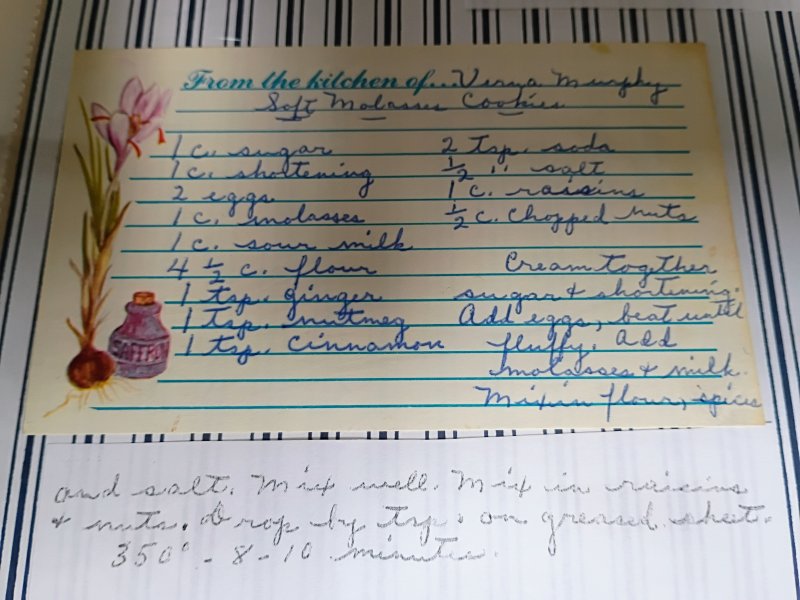 From the kitchen of... Verna Murphy
Soft Molasses Cookies
1 c. sugar
1 c. shortening
2 eggs
1 c. molasses
1 c. sour milk
4 1/2 c. flour
1 tsp. ginger
1 tsp. nutmeg
1 tsp. cinnamon
2 tsp. soda
1/2 " salt
1 c. raisins
1/2 c. chopped nuts
Cream together
sugar & shortening.
Add eggs, beat until
fluffy. Add
molasses & milk.
Mix in flour, spices
SAFFRON
and salt. Mix well. Mix in raisins
& nuts. Drop by tsp. on greased sheet.
350° - 8 - 10 minutes.